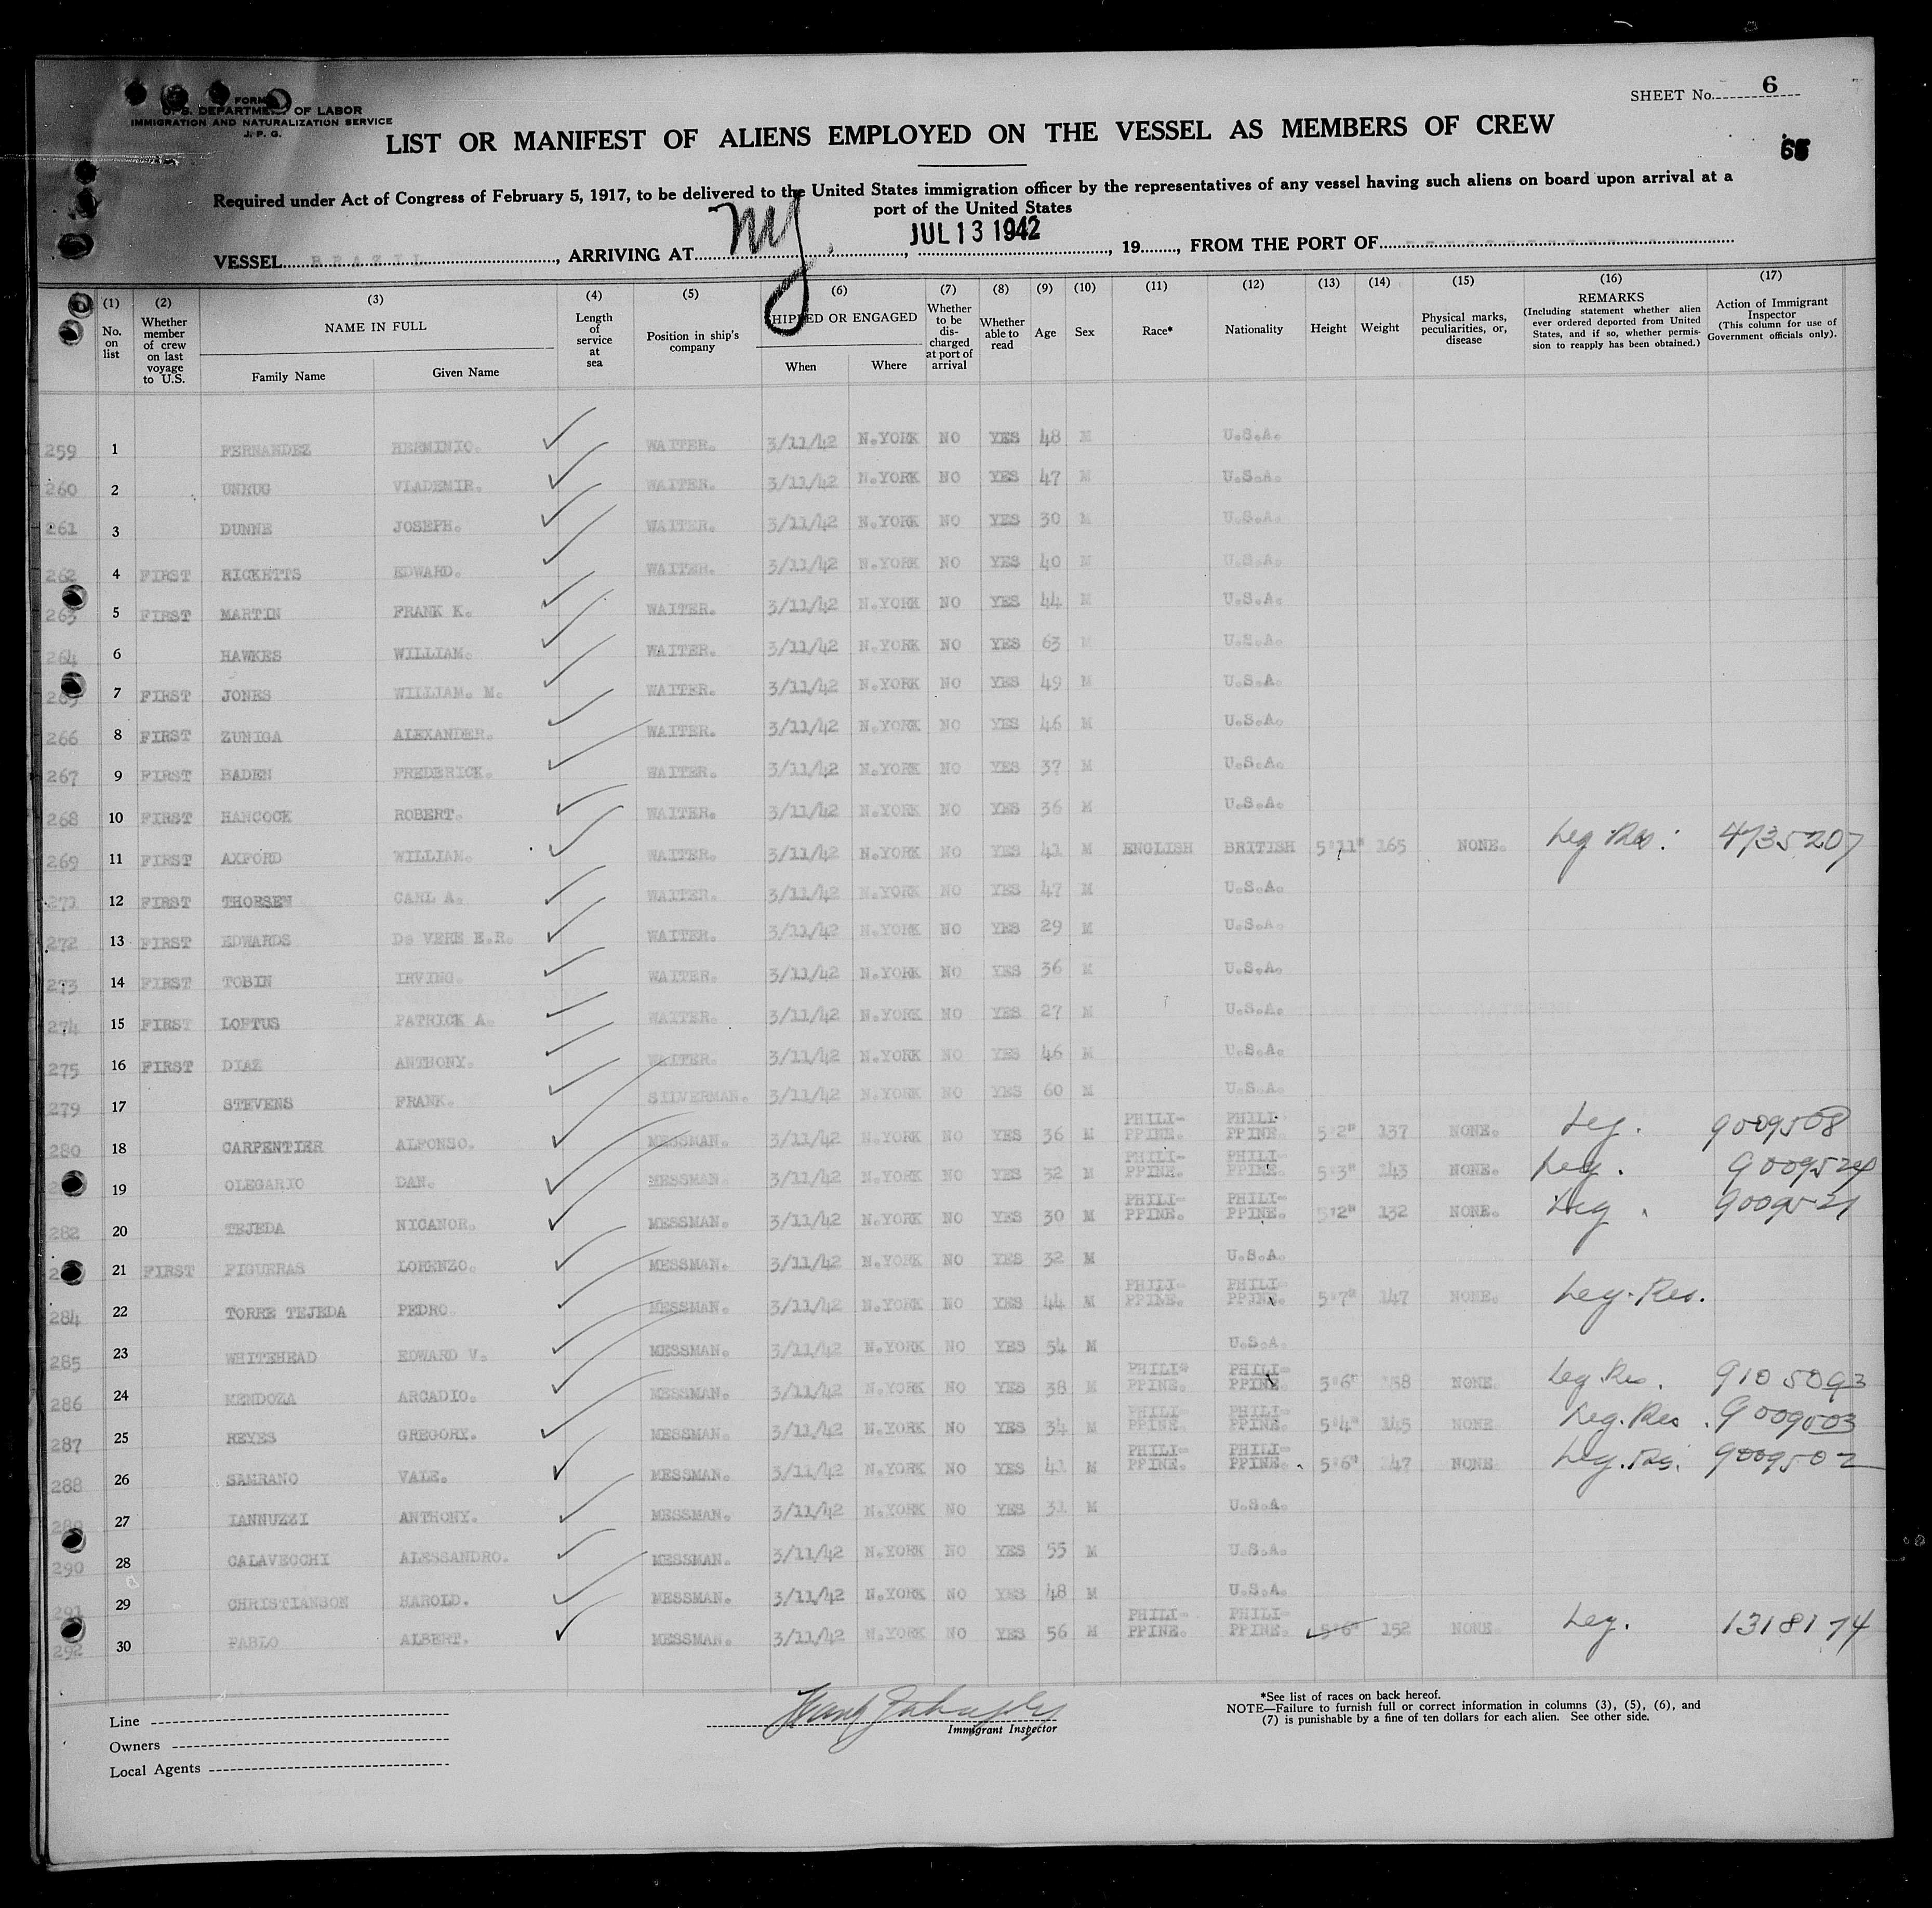 FORM
U. S. DEPARTMENT OF LABOR
IMMIGRATION AND NATURALIZATION SERVICE
J. P. G.
SHEET No. 6
LIST OR MANIFEST OF ALIENS EMPLOYED ON THE VESSEL AS MEMBERS OF CREW
Required under Act of Congress of February 5, 1917, to be delivered to the United States immigration officer by the representatives of any vessel having such aliens on board upon arrival at a
port of the United States
VESSEL BRAZIL, ARRIVING AT NY, JUL 13 1942, 19, FROM THE PORT OF
(1) No. on list (2) Whether member of crew on last voyage to U.S. (3) NAME IN FULL Family Name Given Name (4) Length of service at sea (5) Position in ship's company (6) SHIPPED OR ENGAGED When Where (7) Whether to be discharged at port of arrival (8) Whether able to read (9) Age (10) Sex (11) Race* (12) Nationality (13) Height (14) Weight (15) Physical marks, peculiarities, or, disease (16) REMARKS (Including statement whether alien ever ordered deported from United States, and if so, whether permission to reapply has been obtained.) (17) Action of Immigrant Inspector (This column for use of Government officials only).
259 1 FERNANDEZ HERMINIO. WAITER. 3/11/42 N.YORK NO YES 48 M U.S.A.
260 2 UNRUG VLADEMIR. WAITER. 3/11/42 N.YORK NO YES 47 M U.S.A.
261 3 DUNNE JOSEPH. WAITER. 3/11/42 N.YORK NO YES 30 M U.S.A.
262 4 FIRST RICKETTS EDWARD. WAITER. 3/11/42 N.YORK NO YES 40 M U.S.A.
263 5 FIRST MARTIN FRANK K. WAITER. 3/11/42 N.YORK NO YES 44 M U.S.A.
264 6 HAWKES WILLIAM. WAITER. 3/11/42 N.YORK NO YES 63 M U.S.A.
265 7 FIRST JONES WILLIAM. M. WAITER. 3/11/42 N.YORK NO YES 49 M U.S.A.
266 8 FIRST ZUNIGA ALEXANDER. WAITER. 3/11/42 N.YORK NO YES 46 M U.S.A.
267 9 FIRST BADEN FREDERICK. WAITER. 3/11/42 N.YORK NO YES 37 M U.S.A.
268 10 FIRST HANCOCK ROBERT. WAITER. 3/11/42 N.YORK NO YES 36 M U.S.A.
269 11 FIRST AXFORD WILLIAM. WAITER. 3/11/42 N.YORK NO YES 41 M ENGLISH BRITISH 5'11" 165 NONE. Leg Res. 4735207
271 12 FIRST THORSEN CARL A. WAITER. 3/11/42 N.YORK NO YES 47 M U.S.A.
272 13 FIRST EDWARDS De VERE E.R. WAITER. 3/11/42 N.YORK NO YES 29 M U.S.A.
273 14 FIRST TOBIN IRVING. WAITER. 3/11/42 N.YORK NO YES 36 M U.S.A.
274 15 FIRST LOFTUS PATRICK A. WAITER. 3/11/42 N.YORK NO YES 27 M U.S.A.
275 16 FIRST DIAZ ANTHONY. WAITER. 3/11/42 N.YORK NO YES 46 M U.S.A.
279 17 STEVENS FRANK. SILVERMAN. 3/11/42 N.YORK NO YES 60 M U.S.A.
280 18 CARPENTIER ALFONSO. MESSMAN. 3/11/42 N.YORK NO YES 36 M PHILI-PPINE. PHILI-PPINE. 5'2" 137 NONE. Leg. 9009508
19 OLEGARIO DAN. MESSMAN. 3/11/42 N.YORK NO YES 32 M PHILI-PPINE. PHILI-PPINE. 5'3" 143 NONE. Leg.
282 20 TEJEDA NICANOR. MESSMAN. 3/11/42 N.YORK NO YES 30 M PHILI-PPINE. PHILI-PPINE. 5'2" 132 NONE. Leg. 9009521
21 FIRST FIGUERAS LORENZO. MESSMAN. 3/11/42 N.YORK NO YES 32 M U.S.A.
284 22 TORRE TEJEDA PEDRO MESSMAN. 3/11/42 N.YORK NO YES 44 M PHILI-PPINE. PHILI-PPINE. 5'7" 147 NONE. Leg. Res.
285 23 WHITEHEAD EDWARD V. MESSMAN. 3/11/42 N.YORK NO YES 54 M U.S.A.
286 24 MENDOZA ARCADIO. MESSMAN. 3/11/42 N.YORK NO YES 38 M PHILI-PPINE. PHILI-PPINE. 5'6" 158 NONE Leg. Res. 9105093
287 25 REYES GREGORY. MESSMAN. 3/11/42 N.YORK NO YES 34 M PHILI-PPINE. PHILI-PPINE. 5'4" 145 NONE Leg. Res. 9009003
288 26 SAMRANO VALE. MESSMAN. 3/11/42 N.YORK NO YES 41 M PHILI-PPINE. PHILI-PPINE. 5'6" 147 NONE Leg. Res. 9009502
289 27 IANNUZZI ANTHONY. MESSMAN. 3/11/42 N.YORK NO YES 31 M U.S.A.
290 28 CALAVECCHI ALESSANDRO. MESSMAN. 3/11/42 N.YORK NO YES 55 M U.S.A.
291 29 CHRISTIANSON HAROLD. MESSMAN. 3/11/42 N.YORK NO YES 48 M U.S.A.
292 30 PABLO ALBERT. MESSMAN. 3/11/42 N.YORK NO YES 56 M PHILI-PPINE. PHILI-PPINE. 5'6" 152 NONE Leg. 1318174
Line
Owners
Local Agents
Immigrant Inspector
*See list of races on back hereof.
NOTE—Failure to furnish full or correct information in columns (3), (5), (6), and
(7) is punishable by a fine of ten dollars for each alien. See other side.